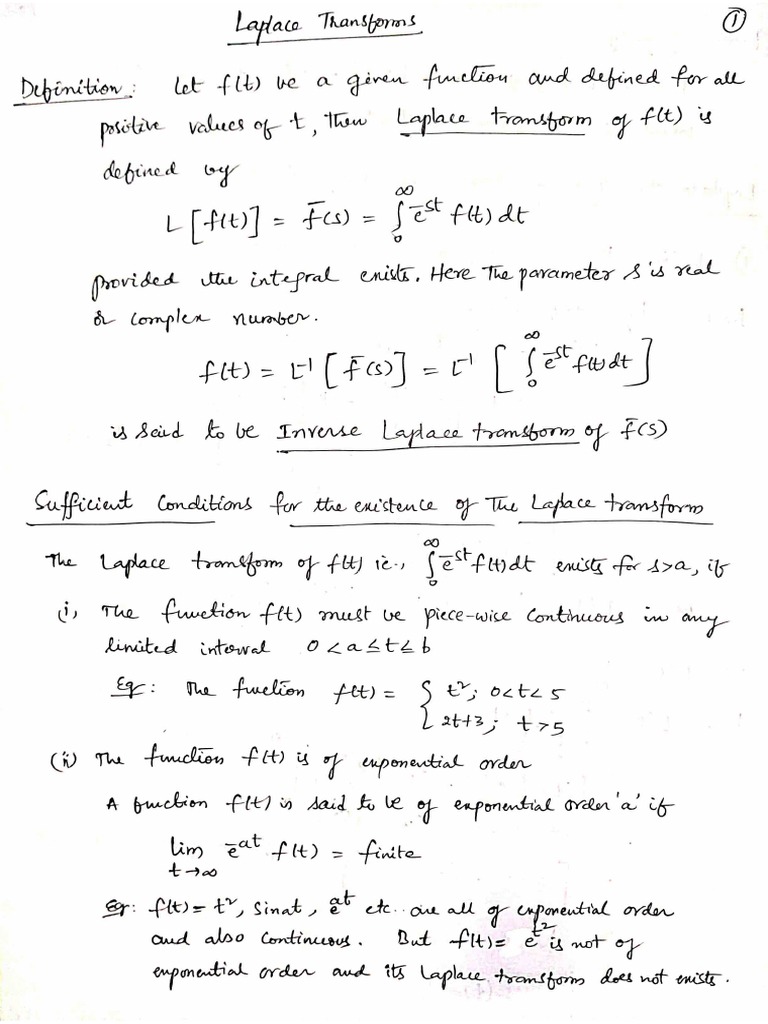 Laplace Transforms ①
Definition: Let f(t) be a given function and defined for all
positive values of t, then Laplace transform of f(t) is
defined by
L[f(t)] = f̄(s) = ∫₀^∞ e^-st f(t) dt
provided the integral exists. Here The parameter s is real
or complex number.
f(t) = L⁻¹[f̄(s)] = L⁻¹[∫₀^∞ e^-st f(t) dt]
is said to be Inverse Laplace transform of f̄(s)
Sufficient Conditions for the existence of The Laplace transform
The Laplace transform of f(t) ie., ∫₀^∞ e^-st f(t) dt exists for s>a, if
(i) The function f(t) must be piece-wise continuous in any
limited interval 0<a≤t≤b
Eg: The function f(t) = { t²; 0<t<5
2t+3; t>5
(ii) The function f(t) is of exponential order
A function f(t) is said to be of exponential order 'a' if
lim t→∞ e^-at f(t) = finite
Eg: f(t) = t², sinat, e^at etc.. are all of exponential order
and also continuous. But f(t) = e^t² is not of
exponential order and its Laplace transform does not exists.